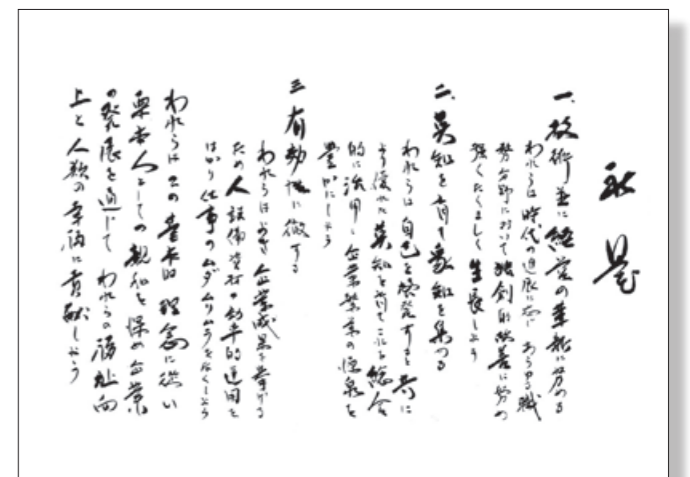 社是
一、技術並に経営の革新に努める
われらは時代の進展に応じ あらゆる職
務分野において独創的改善に努め
強くたくましく生長しよう
二、英知を育て衆知を集める
われらは自己を啓発すると共に
より優れた英知を育て これを総合
的に活用し企業繁栄の源泉を
豊かにしよう
三 有効性に徹する
われらはよき企業成果を挙げる
ため 人 設備 資材の効率的運用を
はかり仕事のムダムリムラをなくしよう
われらはこの基本的理念に従い
人としての親和を深め企業
の発展を通じて われらの福祉向
上と人類の幸福に貢献しよう